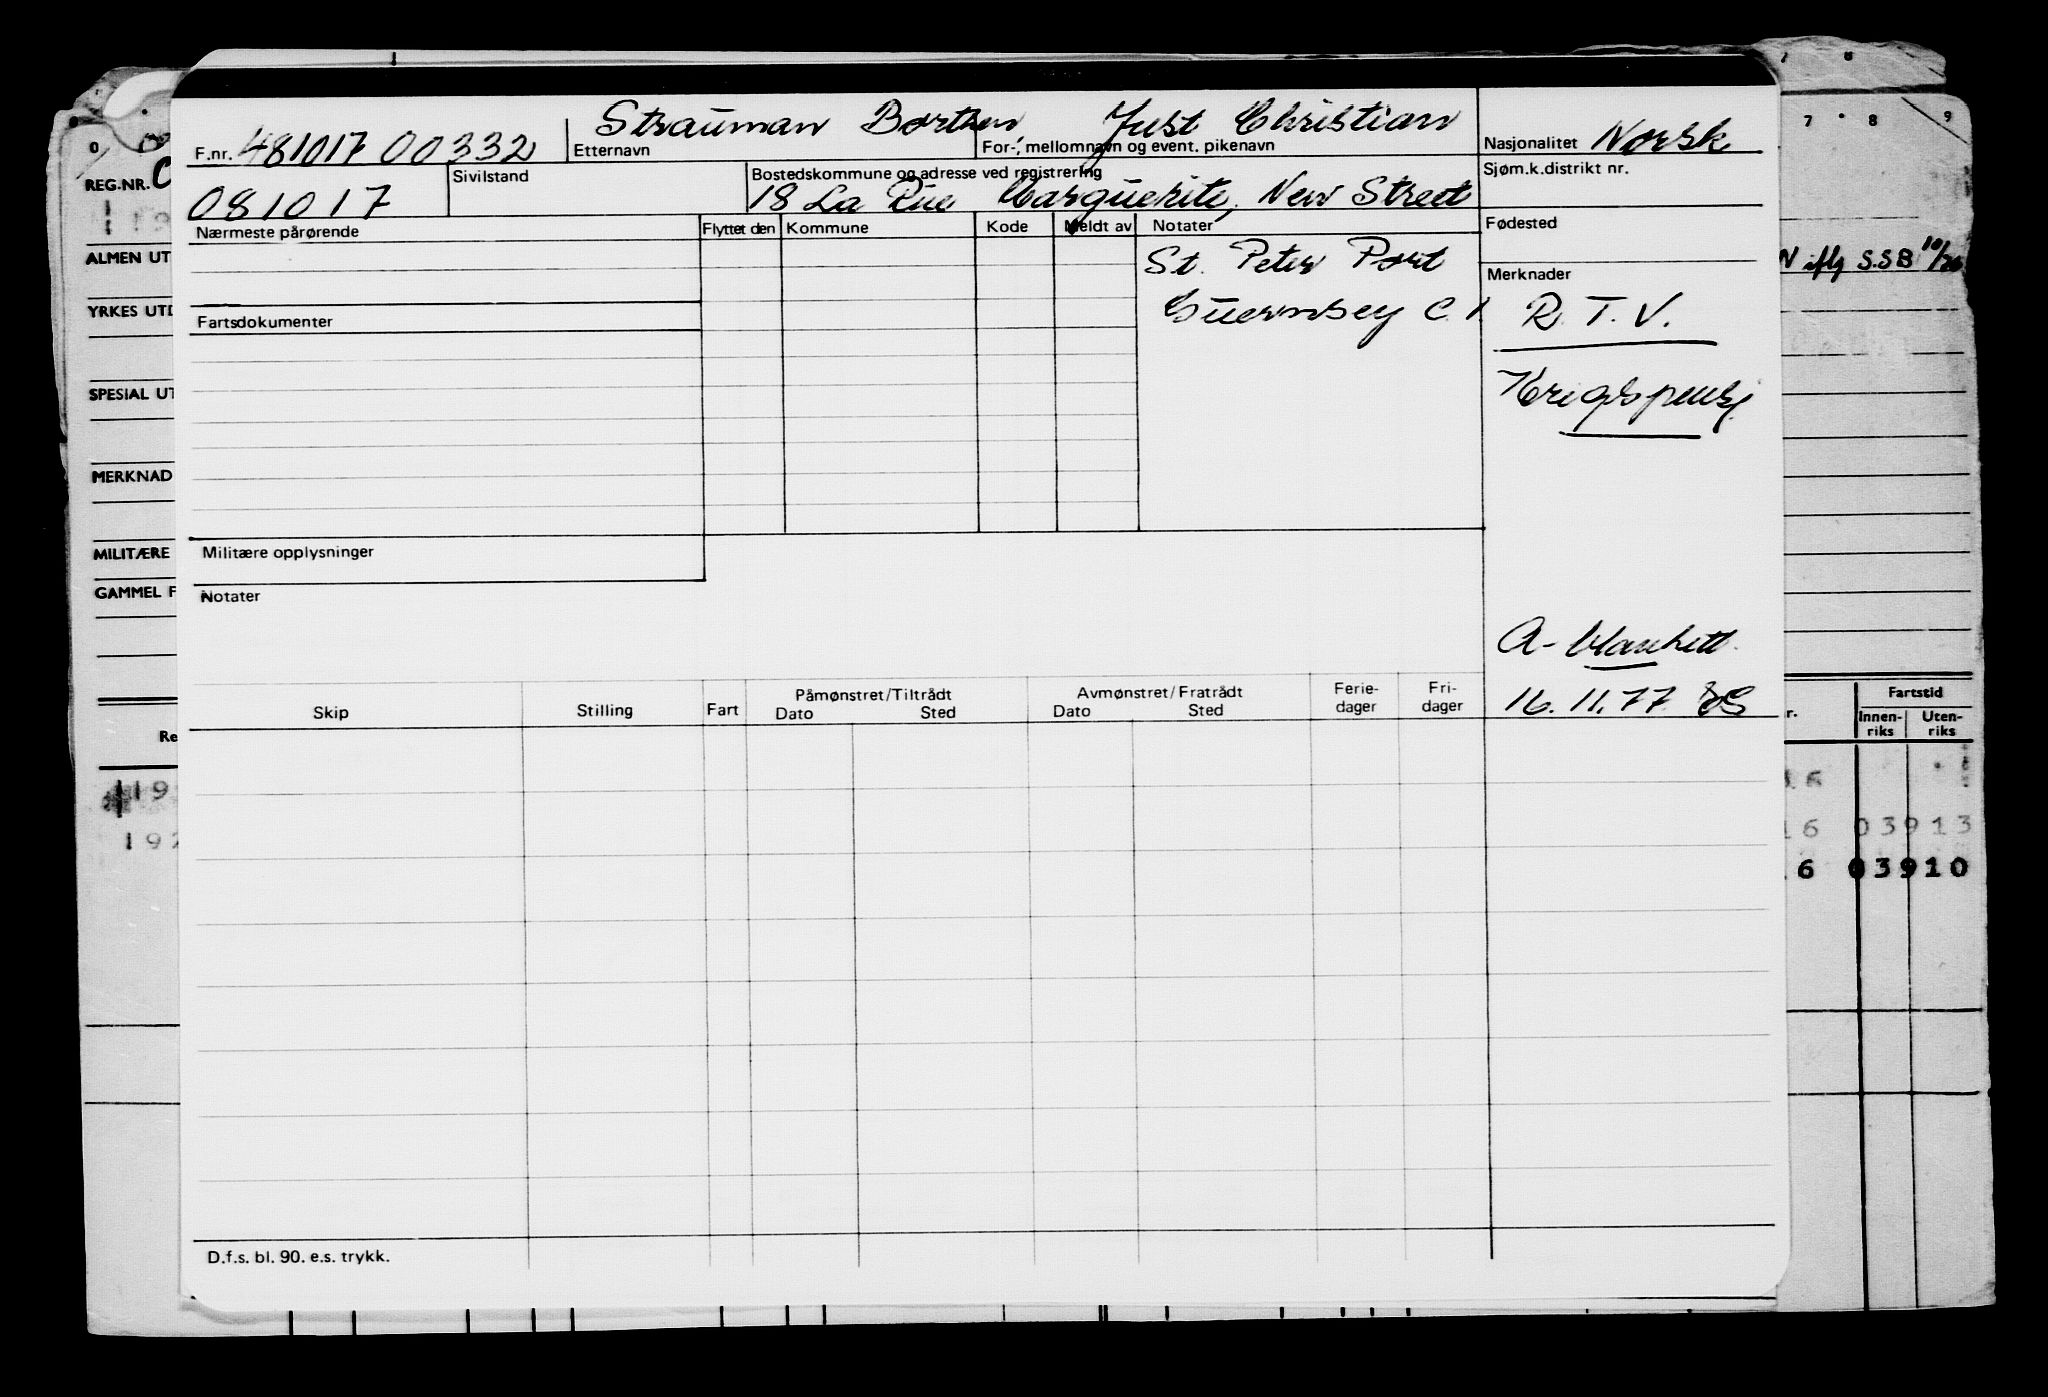 F.nr. 481017 00332
Strauman Borthen, Just Christian
Etternavn
For-, mellomnavn og event. pikenavn
Nasjonalitet Norsk
081017
Sivilstand
Bostedskommune og adresse ved registrering
18 La Rue Marguerite, New Street
Sjøm.k.distrikt nr.
Nærmeste pårørende
Flyttet den
Kommune
Kode
Meldt av
Notater
Fødested
St. Peter Port
Guernsey C.I
Merknader
R.T.V.
Krigspensj.
Fartsdokumenter
Militære opplysninger
Notater
A-blankett
16.11.77
Skip
Stilling
Fart
Påmønstret/Tiltrådt
Dato
Sted
Avmønstret/Fratrådt
Dato
Sted
Ferie-
dager
Fri-
dager
D.f.s. bl. 90. e.s. trykk.
0
REG.NR.
ALMEN UT
YRKES UTD
SPESIAL UT
MERKNAD
MILITÆRE
GAMMEL F
Re
19
192
7
8
9
iflg S.S.B
r.
Fartstid
Innen-
riks
Uten-
riks
16 03913
16 03910